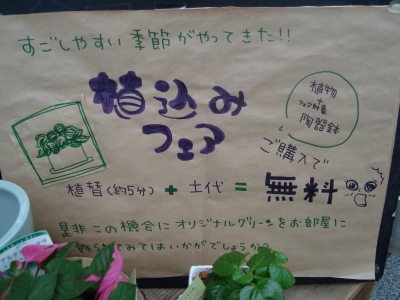 すごしやすい季節がやってきた!!
植込み
フェア
植物
+
フェア対象
陶器鉢
ご購入で
植替(約5分) + 土代 = 無料
是非この機会にオリジナルグリーンをお部屋に
飾られてみてはいかがでしょうか?